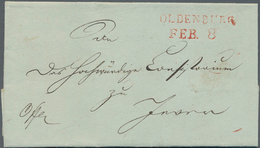 OLDENBURG
FEB. 8
An
das Hochwürdige Consistorium
zu
Jever